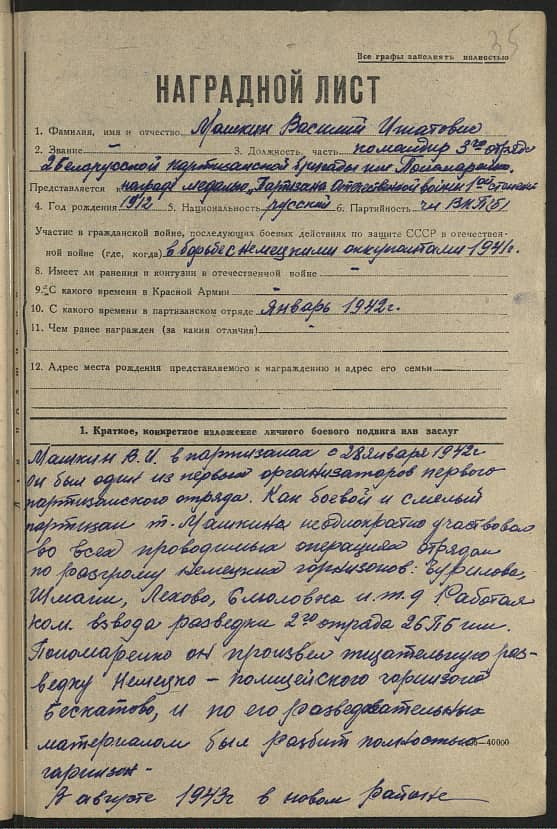 35
Все графы заполнять полностью
НАГРАДНОЙ ЛИСТ
1. Фамилия, имя и отчество Машкин Василий Игнатович
2. Звание - 3. Должность, часть командир 3го отряда
2 Беларусской партизанской бригады им Пономаренко.
Представляется к награде медалью „Партизана Отечественной войны 1ой степени
4. Год рождения 1912 5. Национальность русский 6. Партийность чл ВКП(б)
Участие в гражданской войне, последующих боевых действиях по защите СССР в отечествен-
ной войне (где, когда) в борьбе с немецкими оккупантами 1941г.
8. Имеет ли ранения и контузии в отечественной войне -
9. С какого времени в Красной Армии -
10. С какого времени в партизанском отряде Январь 1942г.
11. Чем ранее награжден (за какия отличия) -
12. Адрес места рождения представляемого к награждению и адрес его семьи
1. Краткое, конкретное изложение личного боевого подвига или заслуг
Машкин В.И. в партизанах с 28 января 1942г
он был один из первых организаторов первого
партизанского отряда. Как боевой и смелый
партизан т. Машкина неоднократно участвовал
во всех проводимых операциях отрядом
по разгрому немецких гарнизонов: Чурилова,
Шмаги, Лехово, и.т.д Работая
ком. взвода разведки 2го отряда 2БПБ им.
Пономаренко он произвел тщательную раз-
ведку Немецко – полицейского гарнизона
Бескатово, и по его разведовательных
материалом был разбит полностью
гарнизон.
-40000
В августе 1943г в новом районе